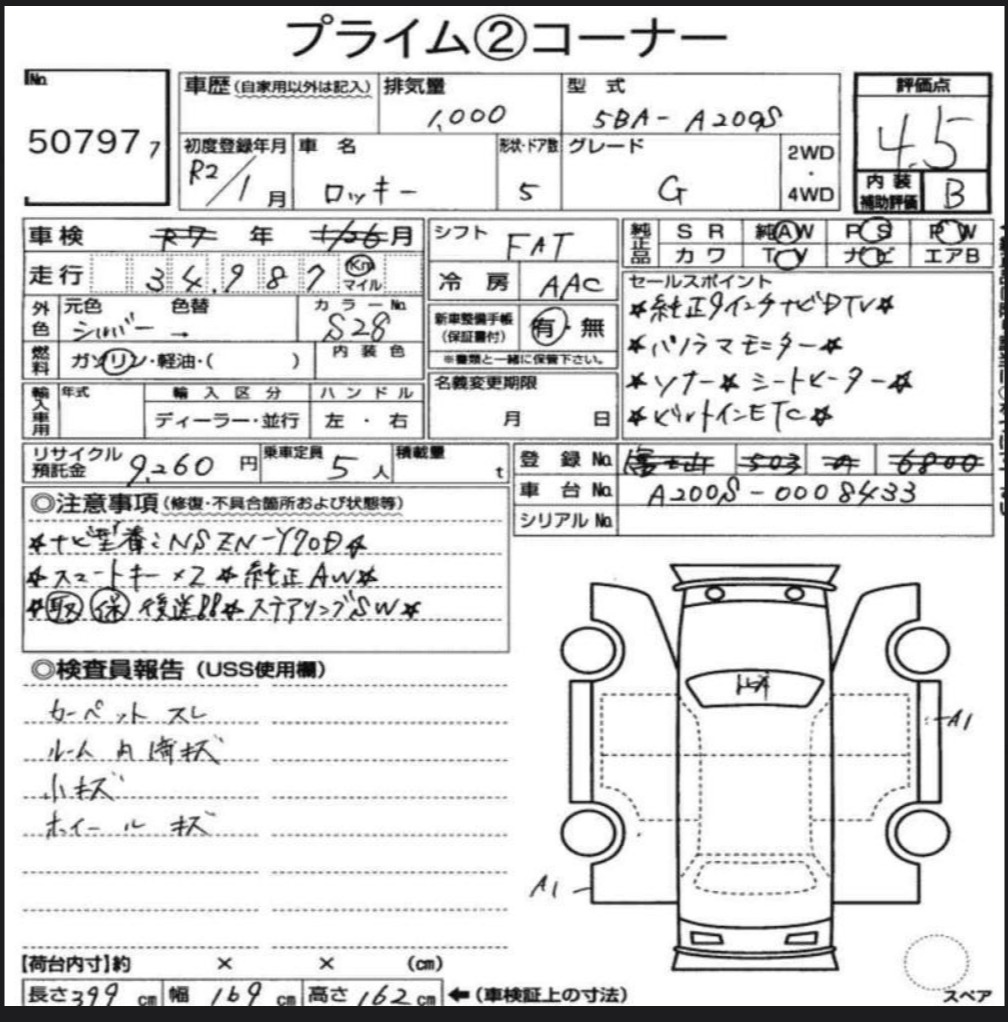 プライム②コーナー
No. 50797 7
車歴(自家用以外は記入) 排気量 1,000 型式 5BA-A200S
評価点 4.5
初度登録年月 R2/1月 車名 ロッキー 形状・ドア数 5 グレード G 2WD・4WD
内装補助評価 B
車検 R7年 1/26月
シフト FAT
純正品 SR 純AW PS PW
カワ TV ナビ エアB
走行 34,987 Km マイル
冷房 AAC
セールスポイント
☆純正9インチナビDTV☆
☆パノラマモニター☆
☆ソナー☆シートヒーター☆
☆ビルトインETC☆
外色 元色 シルバー 色替 → カラーNo. S28
新車整備手帳(保証書付) 有・無
※書類と一緒に保管下さい。
燃料 ガソリン・軽油・( ) 内装色
名義変更期限
月 日
輸入車用 年式 輸入区分 ハンドル
ディーラー・並行 左・右
リサイクル預託金 9,260円 乗車定員 5人 積載量 t
登録No. 富士山 503 6800
車台No. A200S-0008433
シリアルNo.
◎注意事項(修復・不具合箇所および状態等)
☆ナビ型番:NSZN-Y70D☆
☆スマートキー×2☆純正AW☆
☆取 保 後送88☆ステアリングSW☆
◎検査員報告(USS使用欄)
カーペット スレ
ルーム内 キズ
小キズ
ホイール キズ
A1
A1
[荷台内寸]約 × × (cm)
長さ399cm 幅169cm 高さ162cm ←(車検証上の寸法)
スペア